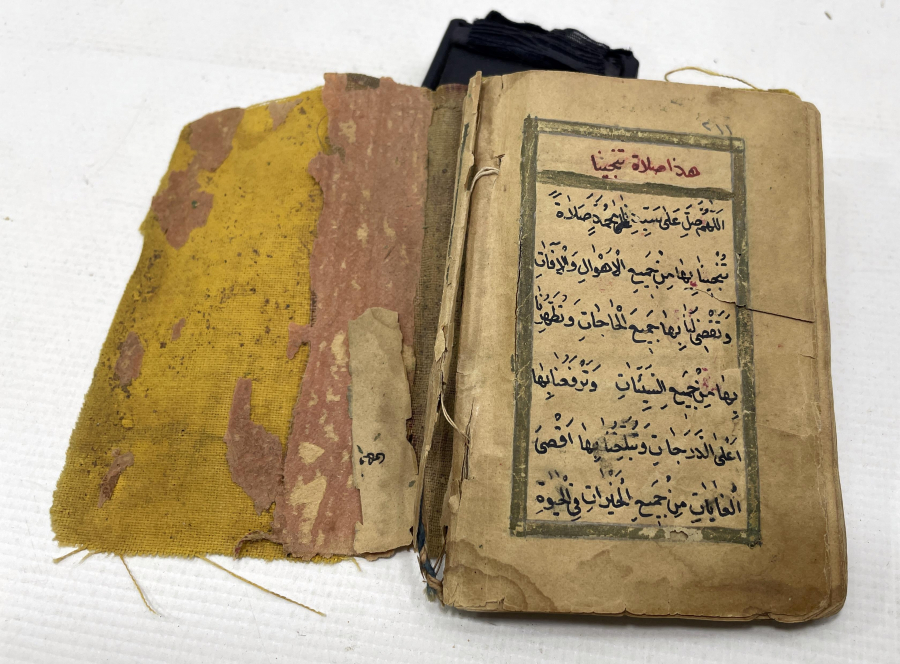 هذا صلاة تنجينا
اَللّٰهُمَّ صَلِّ عَلٰى سَيِّدِنَا مُحَمَّدٍ صَلَاةً
تُنْجِينَا بِهَا مِنْ جَمِيعِ الْاَهْوَالِ وَالْاٰفَاتِ
وَتَقْضِى لَنَا بِهَا جَمِيعَ الْحَاجَاتِ وَتُطَهِّرُنَا
بِهَا مِنْ جَمِيعِ السَّيِّئَاتِ وَتَرْفَعُنَا بِهَا
اَعْلَى الدَّرَجَاتِ وَتُبَلِّغُنَا بِهَا اَقْصَى
الْغَايَاتِ مِنْ جَمِيعِ الْخَيْرَاتِ فِى الْحَيٰوةِ